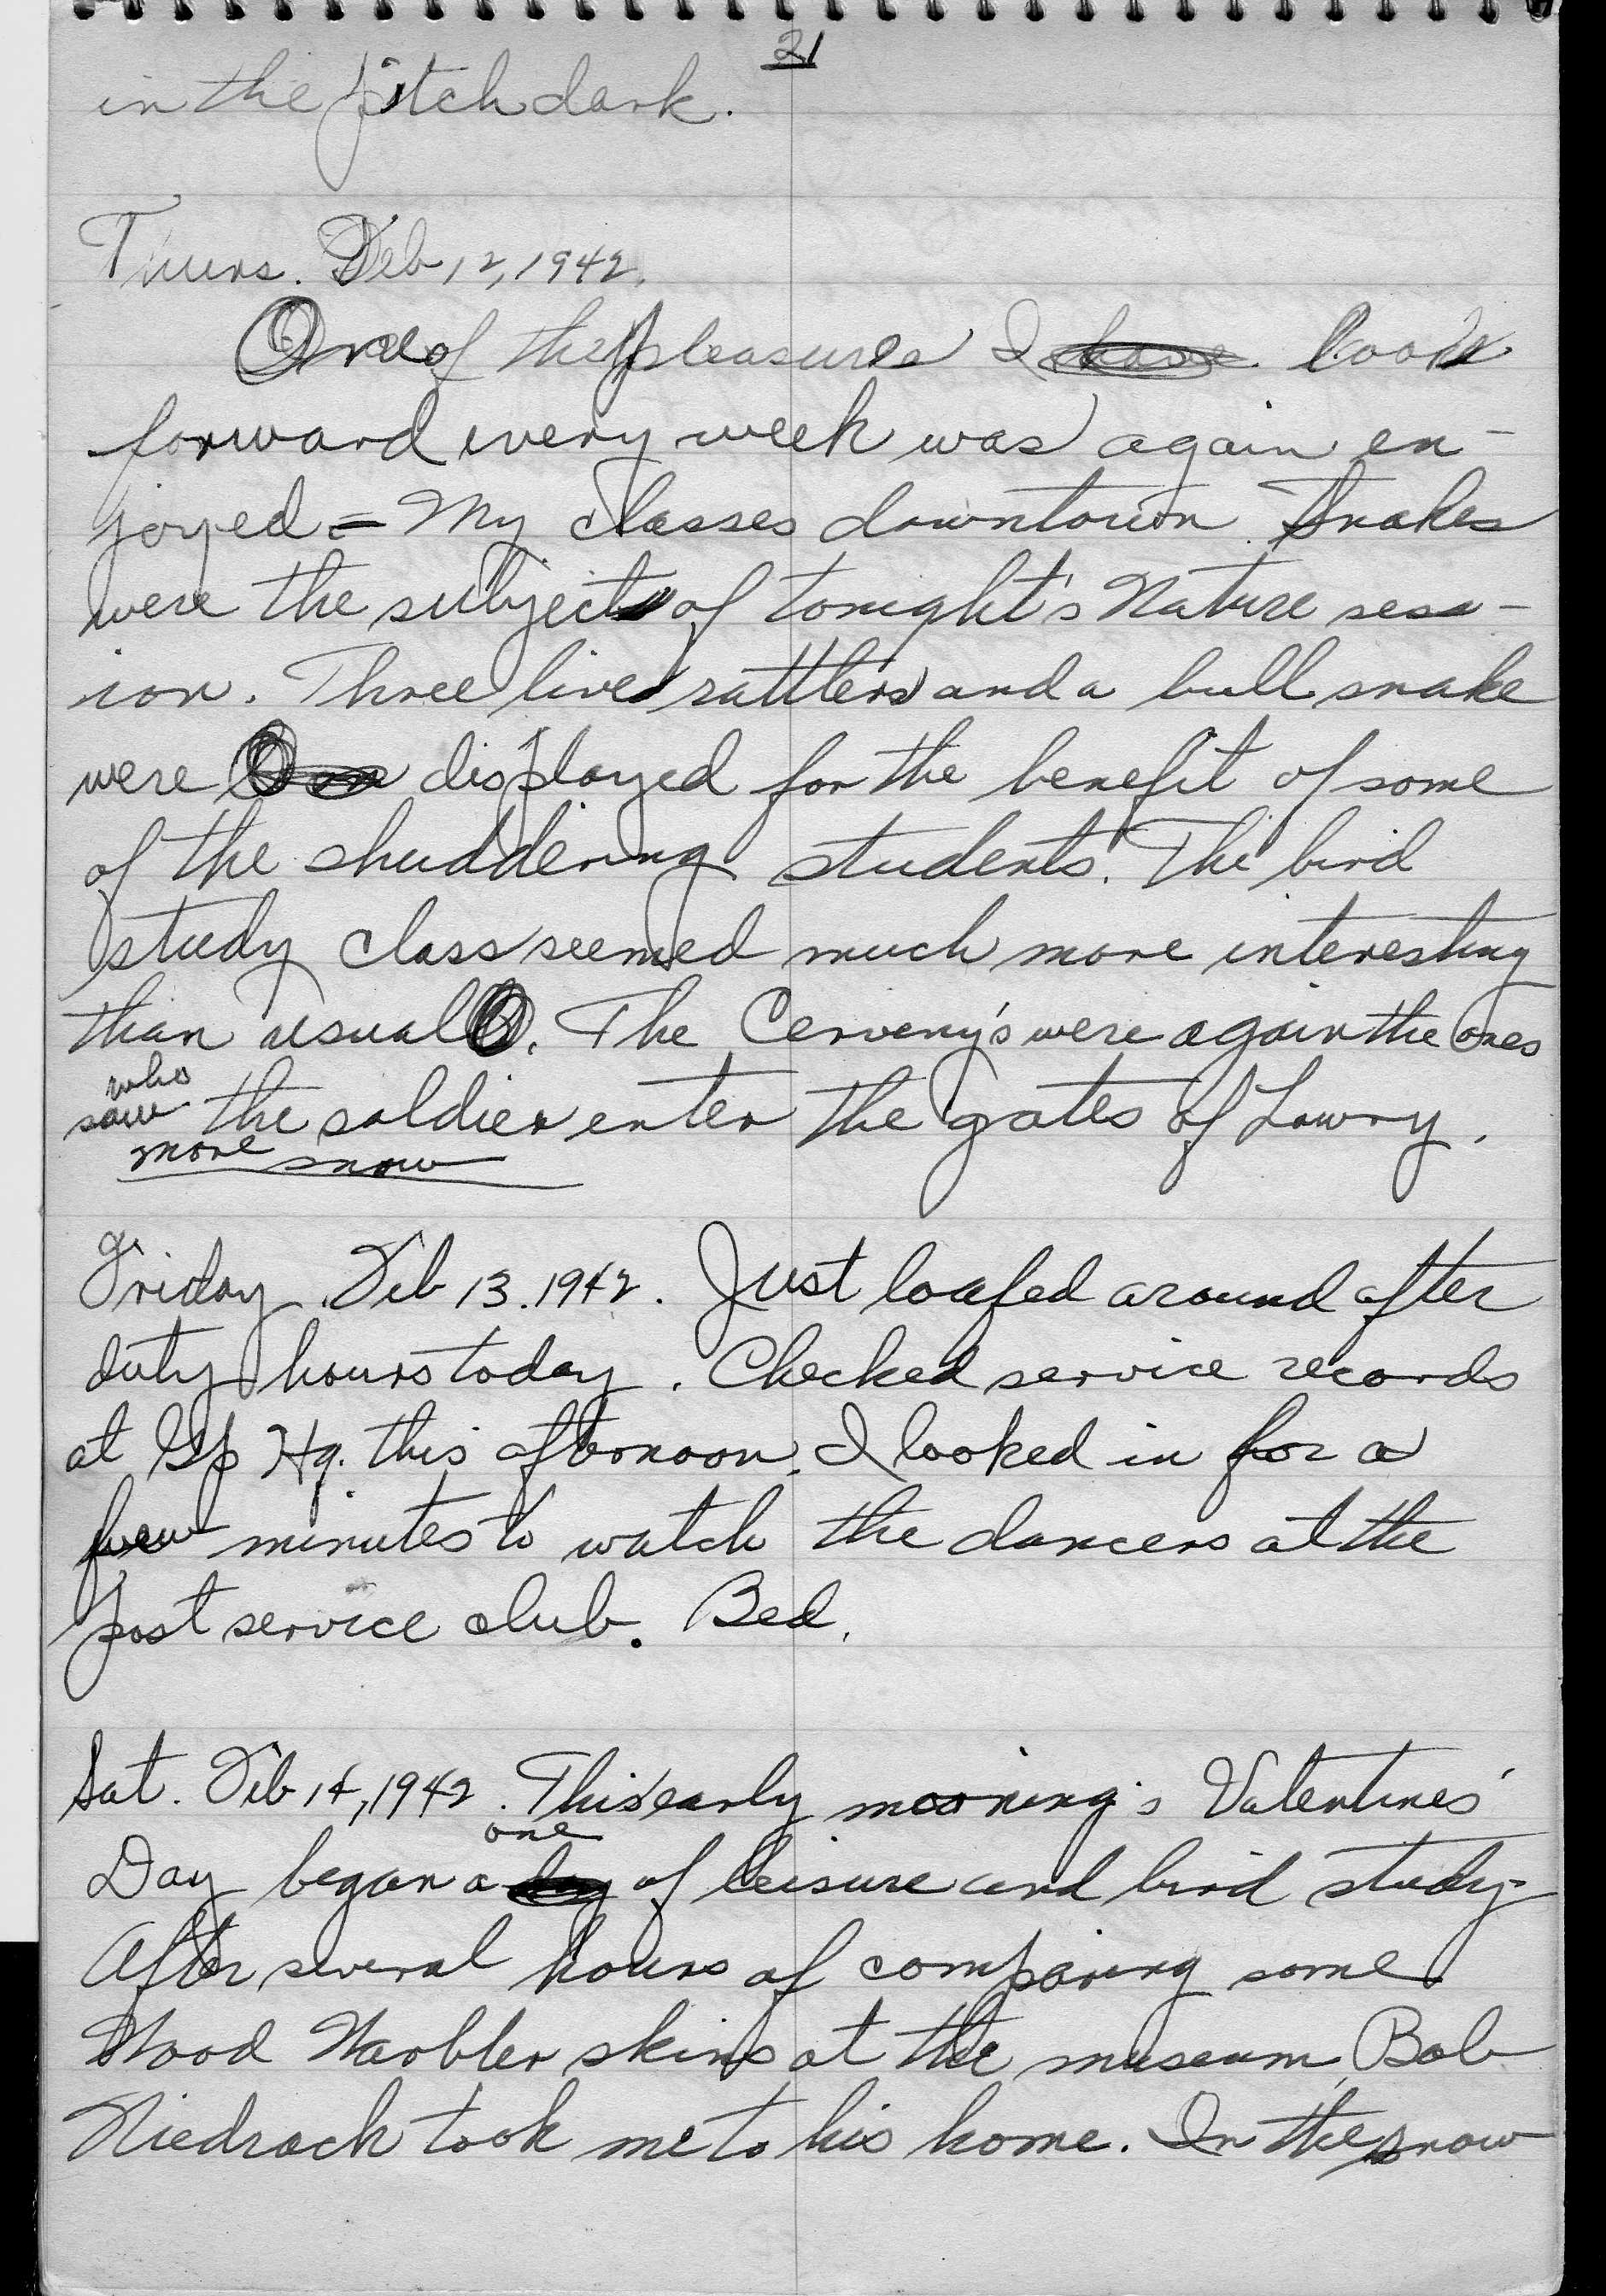 21
in the pitch dark.
Thurs. Feb 12, 1942.
One of the pleasures I look
forward every week was again en-
joyed = My classes downtown. Snakes
were the subject of tonight's Nature sess-
ion. Three live rattlers and a bull snake
were displayed for the benefit of some
of the shuddering students. The bird
study class seemed much more interesting
than usual. The Cerveny's were again the ones
who
saw the soldier enter the gates of Lowry.
more snow
Friday Feb 13. 1942. Just loafed around after
duty hours today. Checked service records
at Gp Hq. this afternoon. I looked in for a
few minutes to watch the dancers at the
post service club. Bed.
Sat. Feb 14, 1942. This early morning's Valentines'
one
Day began a of leisure and bird study.
After several hours of comparing some
Wood Warbler skins at the museum, Bob
Niedrach took me to his home. In the snow